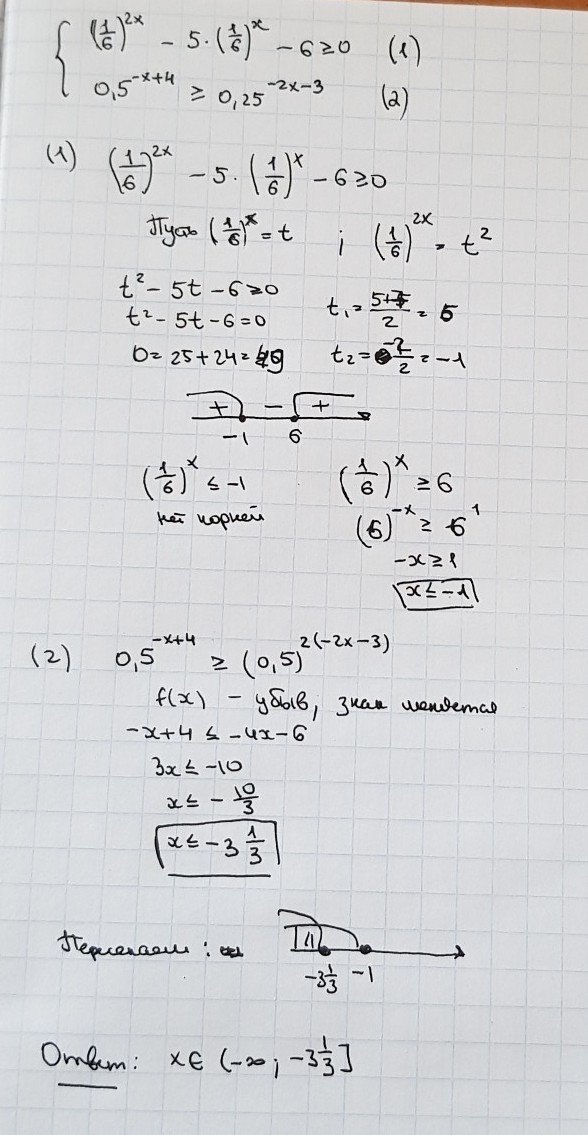 (1/6)^2x - 5·(1/6)^x - 6 ≥ 0 (1)
0,5^-x+4 ≥ 0,25^-2x-3 (2)
(1) (1/6)^2x - 5·(1/6)^x - 6 ≥ 0
Пусть (1/6)^x = t ; (1/6)^2x = t^2
t^2 - 5t - 6 ≥ 0
t^2 - 5t - 6 = 0
D = 25 + 24 = 49
t1 = 5+7/2 = 6
t2 = -2/2 = -1
+ - +
-1 6
(1/6)^x ≤ -1
нет корней
(1/6)^x ≥ 6
(6)^-x ≥ 6^1
-x ≥ 1
x ≤ -1
(2) 0,5^-x+4 ≥ (0,5)^2(-2x-3)
f(x) - убыв, знак меняется
-x+4 ≤ -4x-6
3x ≤ -10
x ≤ - 10/3
x ≤ -3 1/3
Пересекаем :
-3 1/3 -1
Ответ: x∈ (-∞; -3 1/3]